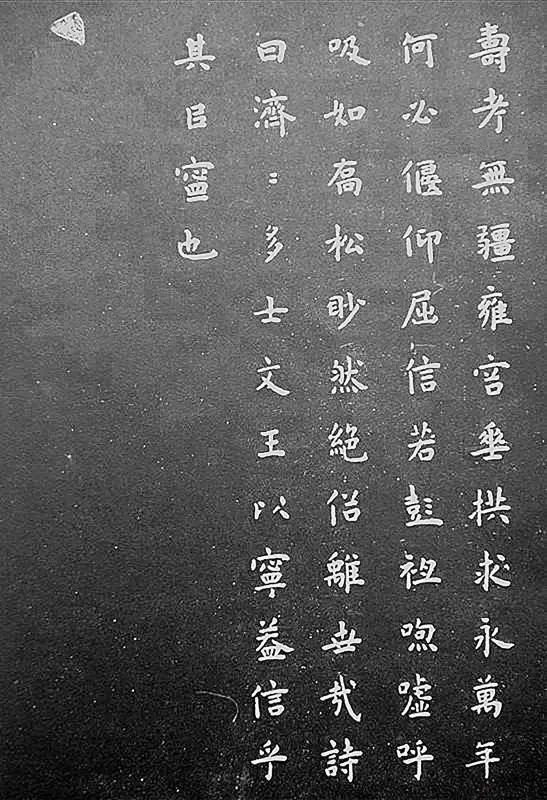 壽考無疆雍容垂拱求永萬年
何必偃仰屈信若彭祖呴噓呼
吸如喬松眇然絕俗離世哉詩
曰濟〻多士文王以寧蓋信乎
其㠯寍也